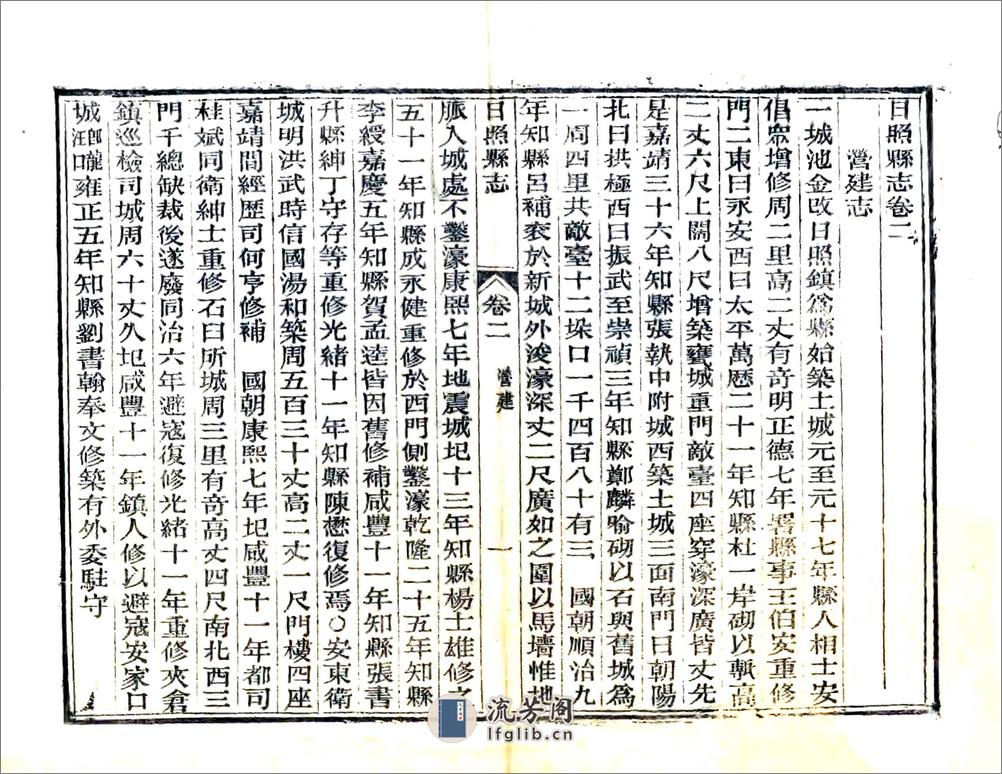 日照縣志卷二
營建志
一城池金改日照鎮爲縣始築土城元至元十七年縣人相士安
倡衆增修周二里高二丈有奇明正德七年署縣事王伯安重修
門二東曰永安西曰太平萬歷二十一年知縣杜一岸砌以甎高
二丈六尺上闊八尺增築甕城重門敵臺四座穿濠深廣皆丈先
是嘉靖三十六年知縣張執中附城西築土城三面南門曰朝陽
北曰拱極西曰振武至崇禎三年知縣鄭麟喻砌以石與舊城為
一周四里共敵臺十二垛口一千四百八十有三 國朝順治九
年知縣呂補袞於新城外浚濠深丈二尺廣如之圍以馬墻惟地
日照縣志 卷二 營建 一
脈入城處不鑿濠康熙七年地震城圮十三年知縣楊士雄修之
五十一年知縣成永健重修於西門側鑿濠乾隆二十五年知縣
李綬嘉慶五年知縣賀孟逵皆因舊修補咸豐十一年知縣張書
升縣紳丁守存等重修光緒十一年知縣陳懋復修焉○安東衛
城明洪武時信國湯和築周五百三十丈高二丈一尺門樓四座
嘉靖間經歷司何亨修補 國朝康熙七年圮咸豐十一年都司
桂斌同衛紳士重修石臼所城周三里有奇高丈四尺南北西三
門千總缺裁後遂廢同治六年避寇復修光緒十一年重修夾倉
鎮巡檢司城周六十丈久圮咸豐十一年鎮人修以避寇安家口
城卽龍汪口雍正五年知縣劉書翰奉文修築有外委駐守
流芳阁
lfglib.cn